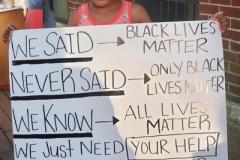 WE SAID → BLACK LIVES
MATTER
NEVER SAID → ONLY BLACK
LIVES MATTER
WE KNOW → ALL LIVES
MATTER
WE JUST NEED YOUR HELP